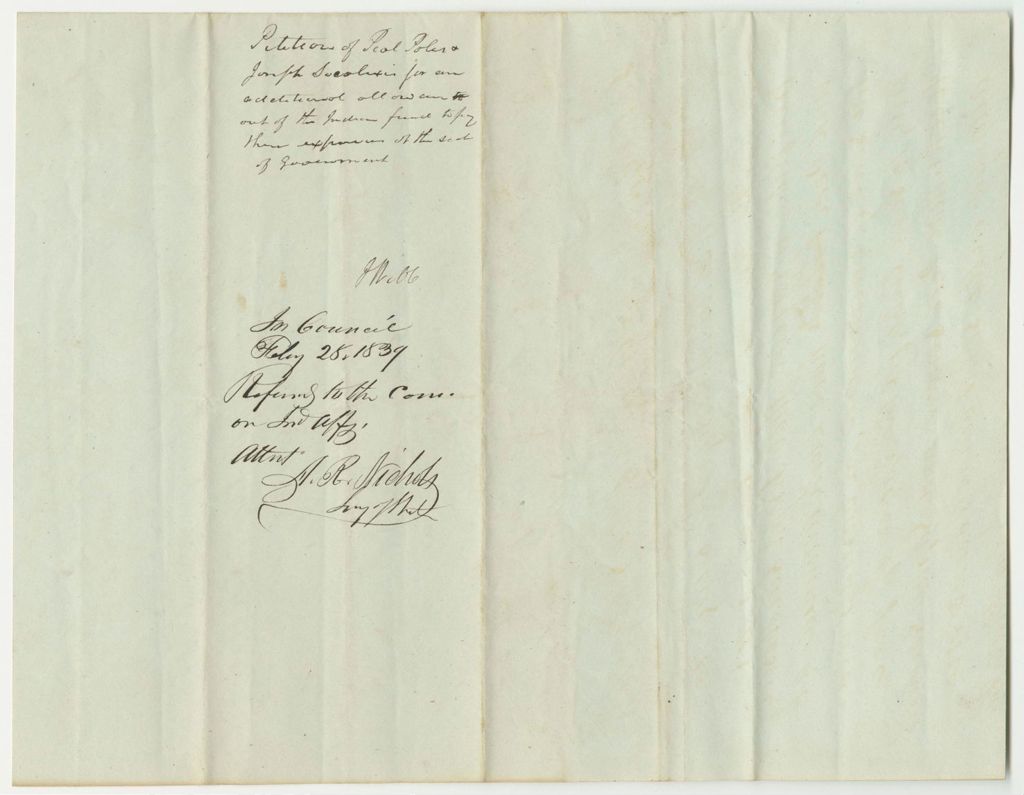 Petition of Peal Polus &
Joseph Socalexis for an
additional allowance to
out of the Indian fund to pay
their expenses at the seat
of Government
In Council
Feby 28, 1839
Referred to the Com.
on Ind Affs,
Attest
A. R. Nichols
Secy of State